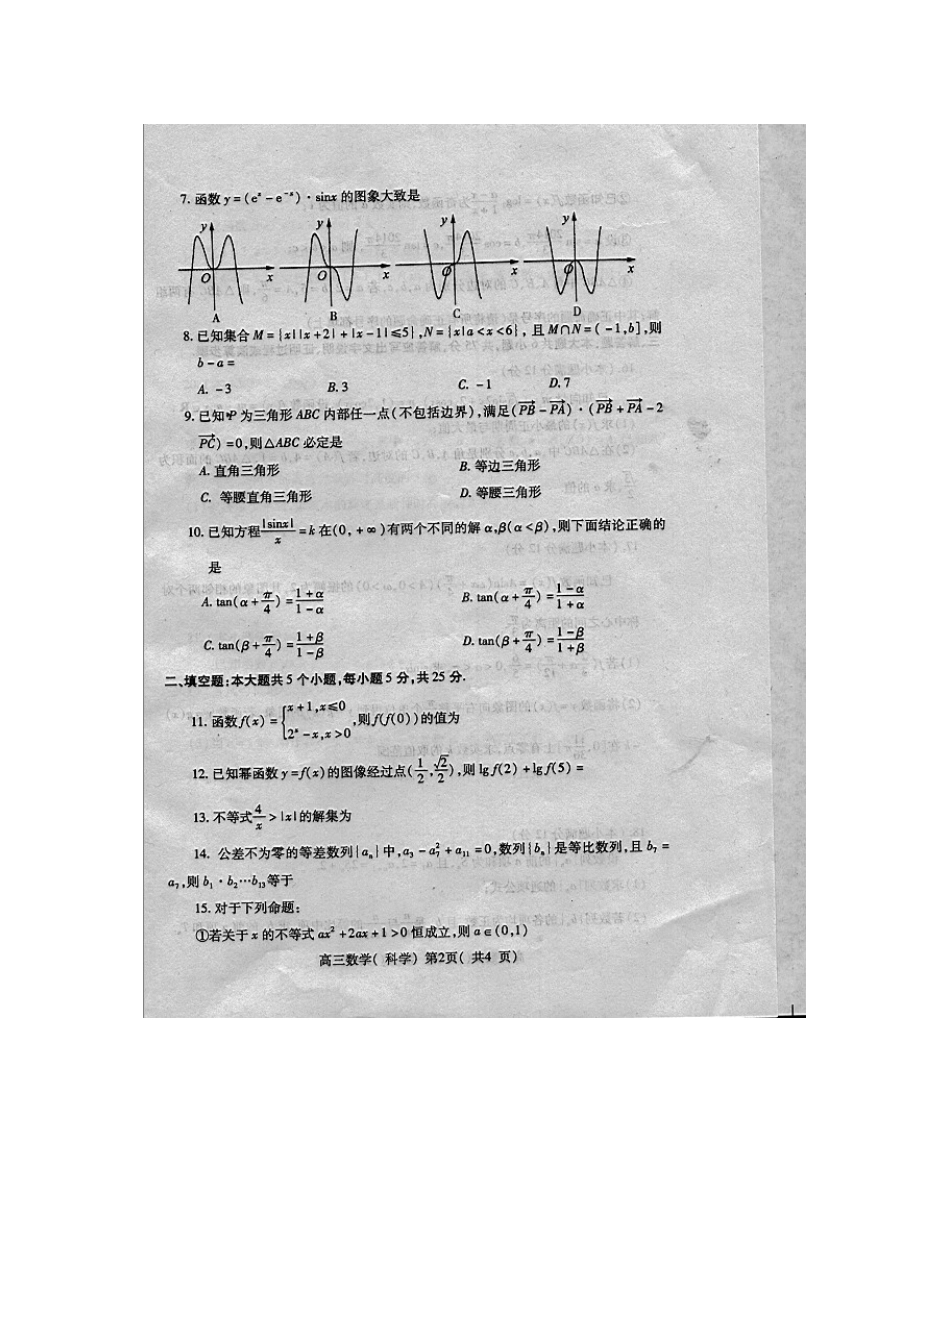 7. 函数 y=(eˣ-e⁻ˣ)·sinx 的图象大致是
y y y y
O x O x O x O x
A B C D
8. 已知集合 M={x||x+2|+|x-1|≤5},N={x|a<x<6},且 M∩N=(-1,b],则
b-a=
A. -3 B. 3 C. -1 D. 7
9. 已知 P 为三角形 ABC 内部任一点(不包括边界),满足(PB-PA)·(PB+PA-2
PC)=0,则△ABC 必定是
A. 直角三角形 B. 等边三角形
C. 等腰直角三角形 D. 等腰三角形
10. 已知方程|sinx|/x=k 在(0,+∞)有两个不同的解 α,β(α<β),则下面结论正确的
是
A. tan(α+π/4)=(1+α)/(1-α) B. tan(α+π/4)=(1-α)/(1+α)
C. tan(β+π/4)=(1+β)/(1-β) D. tan(β+π/4)=(1-β)/(1+β)
二、填空题:本大题共 5 个小题,每小题 5 分,共 25 分.
11. 函数 f(x)={x+1,x≤0 2ˣ-x,x>0,则 f(f(0))的值为
12. 已知幂函数 y=f(x)的图像经过点(1/2,√2/2),则 lg f(2)+lg f(5)=
13. 不等式4/x>|x|的解集为
14. 公差不为零的等差数列{aₙ}中,a₃-a₇²+a₁₁=0,数列{bₙ}是等比数列,且 b₇=
a₇,则 b₁·b₂…b₁₃等于
15. 对于下列命题:
①若关于 x 的不等式 ax²+2ax+1>0 恒成立,则 a∈(0,1)
高三数学( 科学) 第2页( 共4 页)